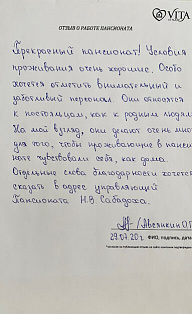 VITA
ОТЗЫВ О РАБОТЕ ПАНСИОНАТА
Прекрасный пансионат! Условия
проживания очень хорошие. Особо
хочется отметить внимательный и
заботливый персонал. Они относятся
к постояльцам, как к родным людям.
На мой взгляд, они делают очень много
для того, чтобы проживающие в панси
нате чувствовали себя, как дома.
Отдельные слова благодарности хочется
сказать в адрес управляющей
Пансионата Н.В. Сабадаха.
29.07.20
ФИО, подпись, дата